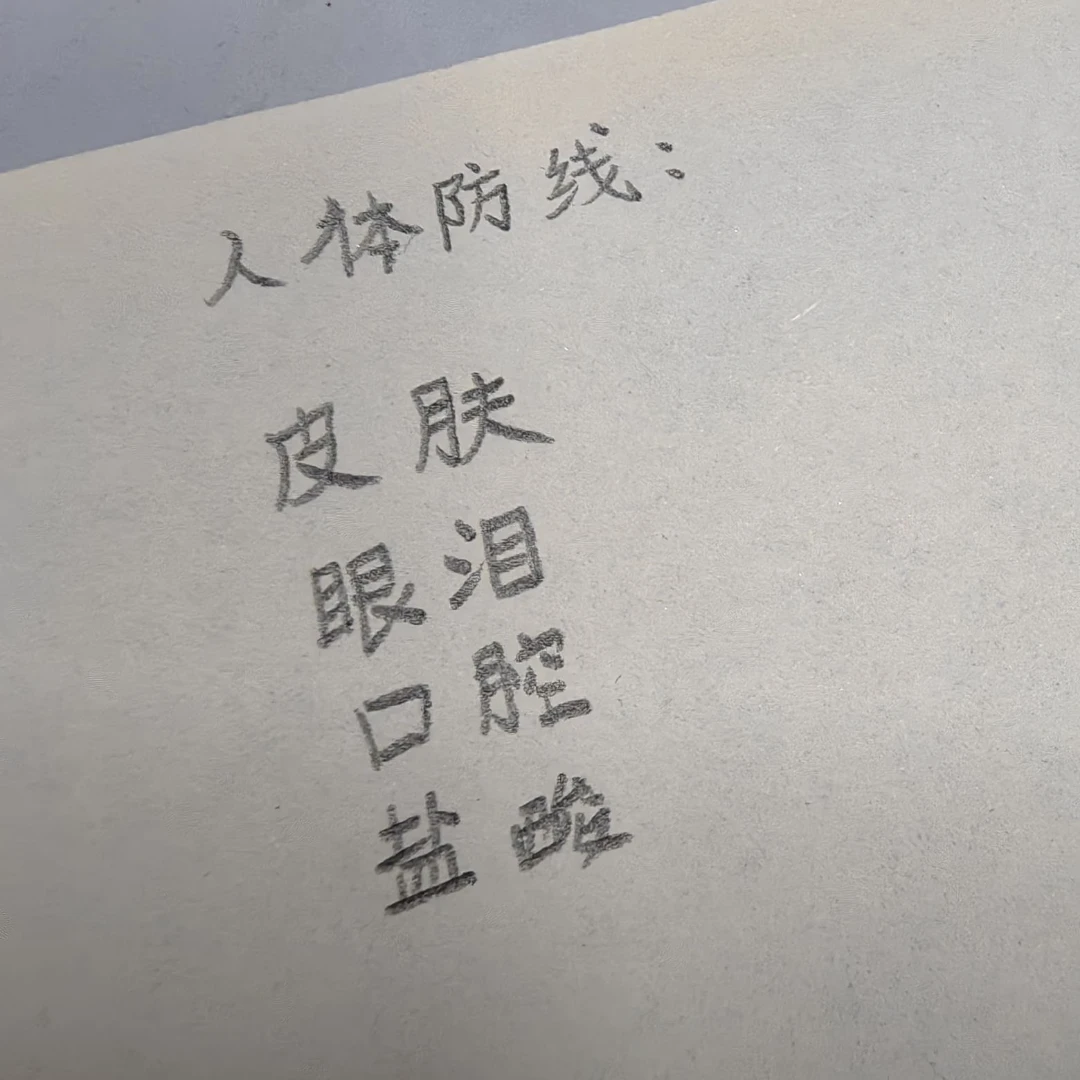 人体防线:
皮肤
眼泪
口腔
盐酸